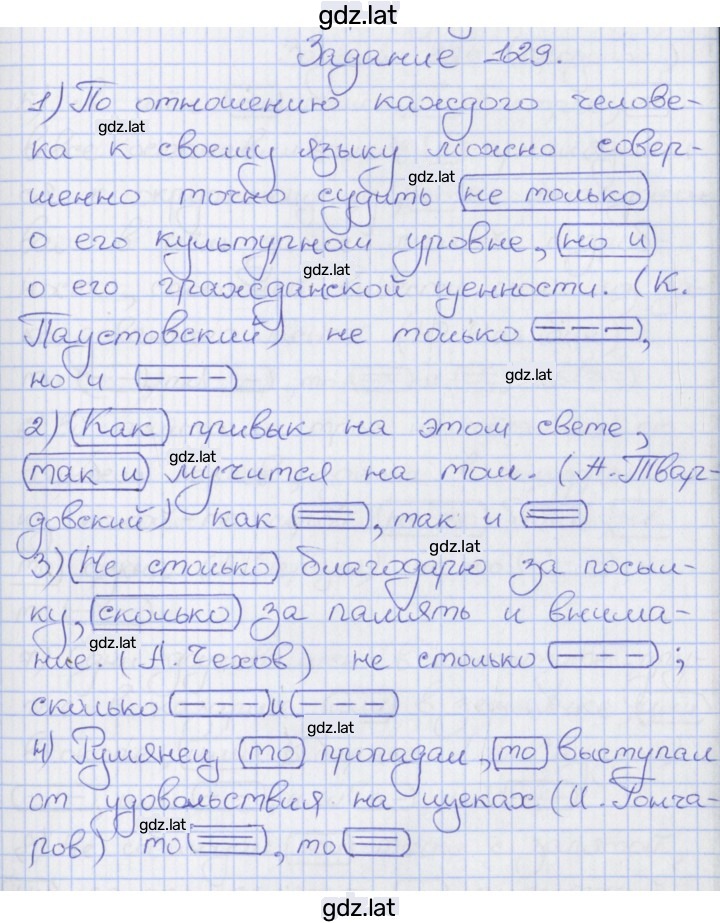 gdz.lat
Задание 129.
1) По отношению каждого челове-
gdz.lat
ка к своему языку можно совер-
gdz.lat
шенно точно судить не только
о его культурном уровне, но и
gdz.lat
о его гражданской ценности. (К.
Паустовский) не только ,
но и
gdz.lat
2) Как привык на этом свете,
gdz.lat
так и мучится на том. (А. Твар-
довский) как , так и
gdz.lat
3) Не столько благодарю за посыл-
ку, сколько за память и внима-
gdz.lat
ние. (А. Чехов) не столько ;
сколько и
gdz.lat
4) Румянец то пропадал, то выступал
от удовольствия на щеках (И. Гонча-
gdz.lat
ров) то , то
gdz.lat